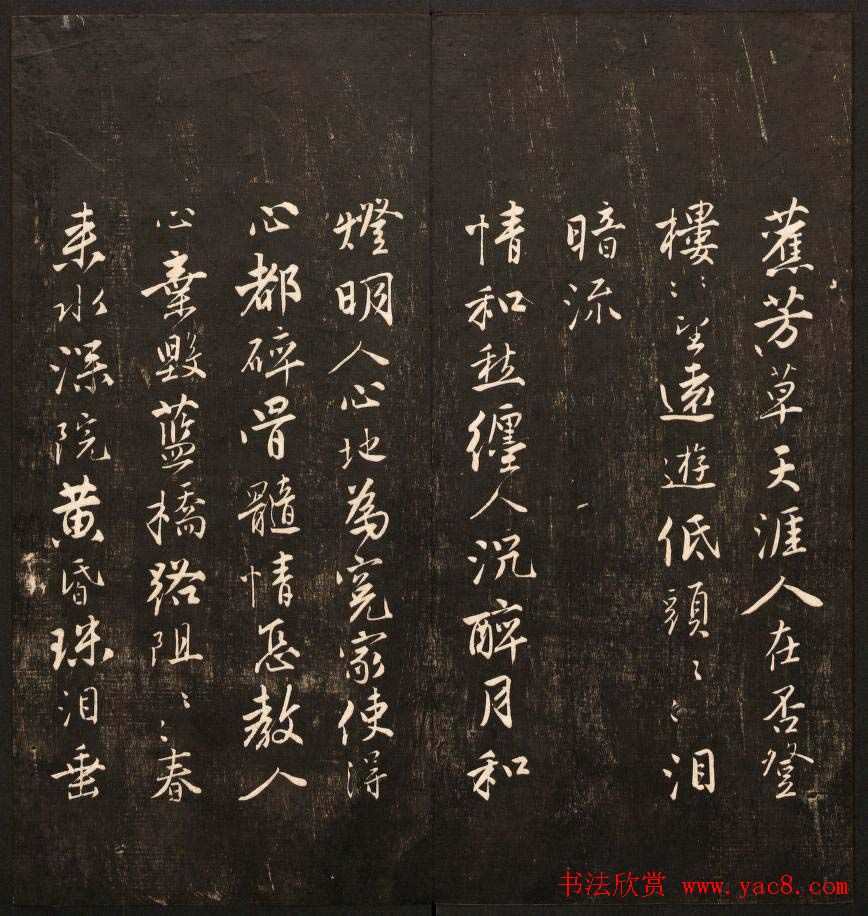 蕉芳草天涯人在否登
樓〻望遠遊低頭〻〻泪
暗流
情和愁纏人沉醉月和
燈明人心地為冤家使得
心都碎骨髓情忍教人
心棄毀藍橋路阻〻〻春
来水深院黄昏珠泪垂
书法欣赏 www.yac8.com